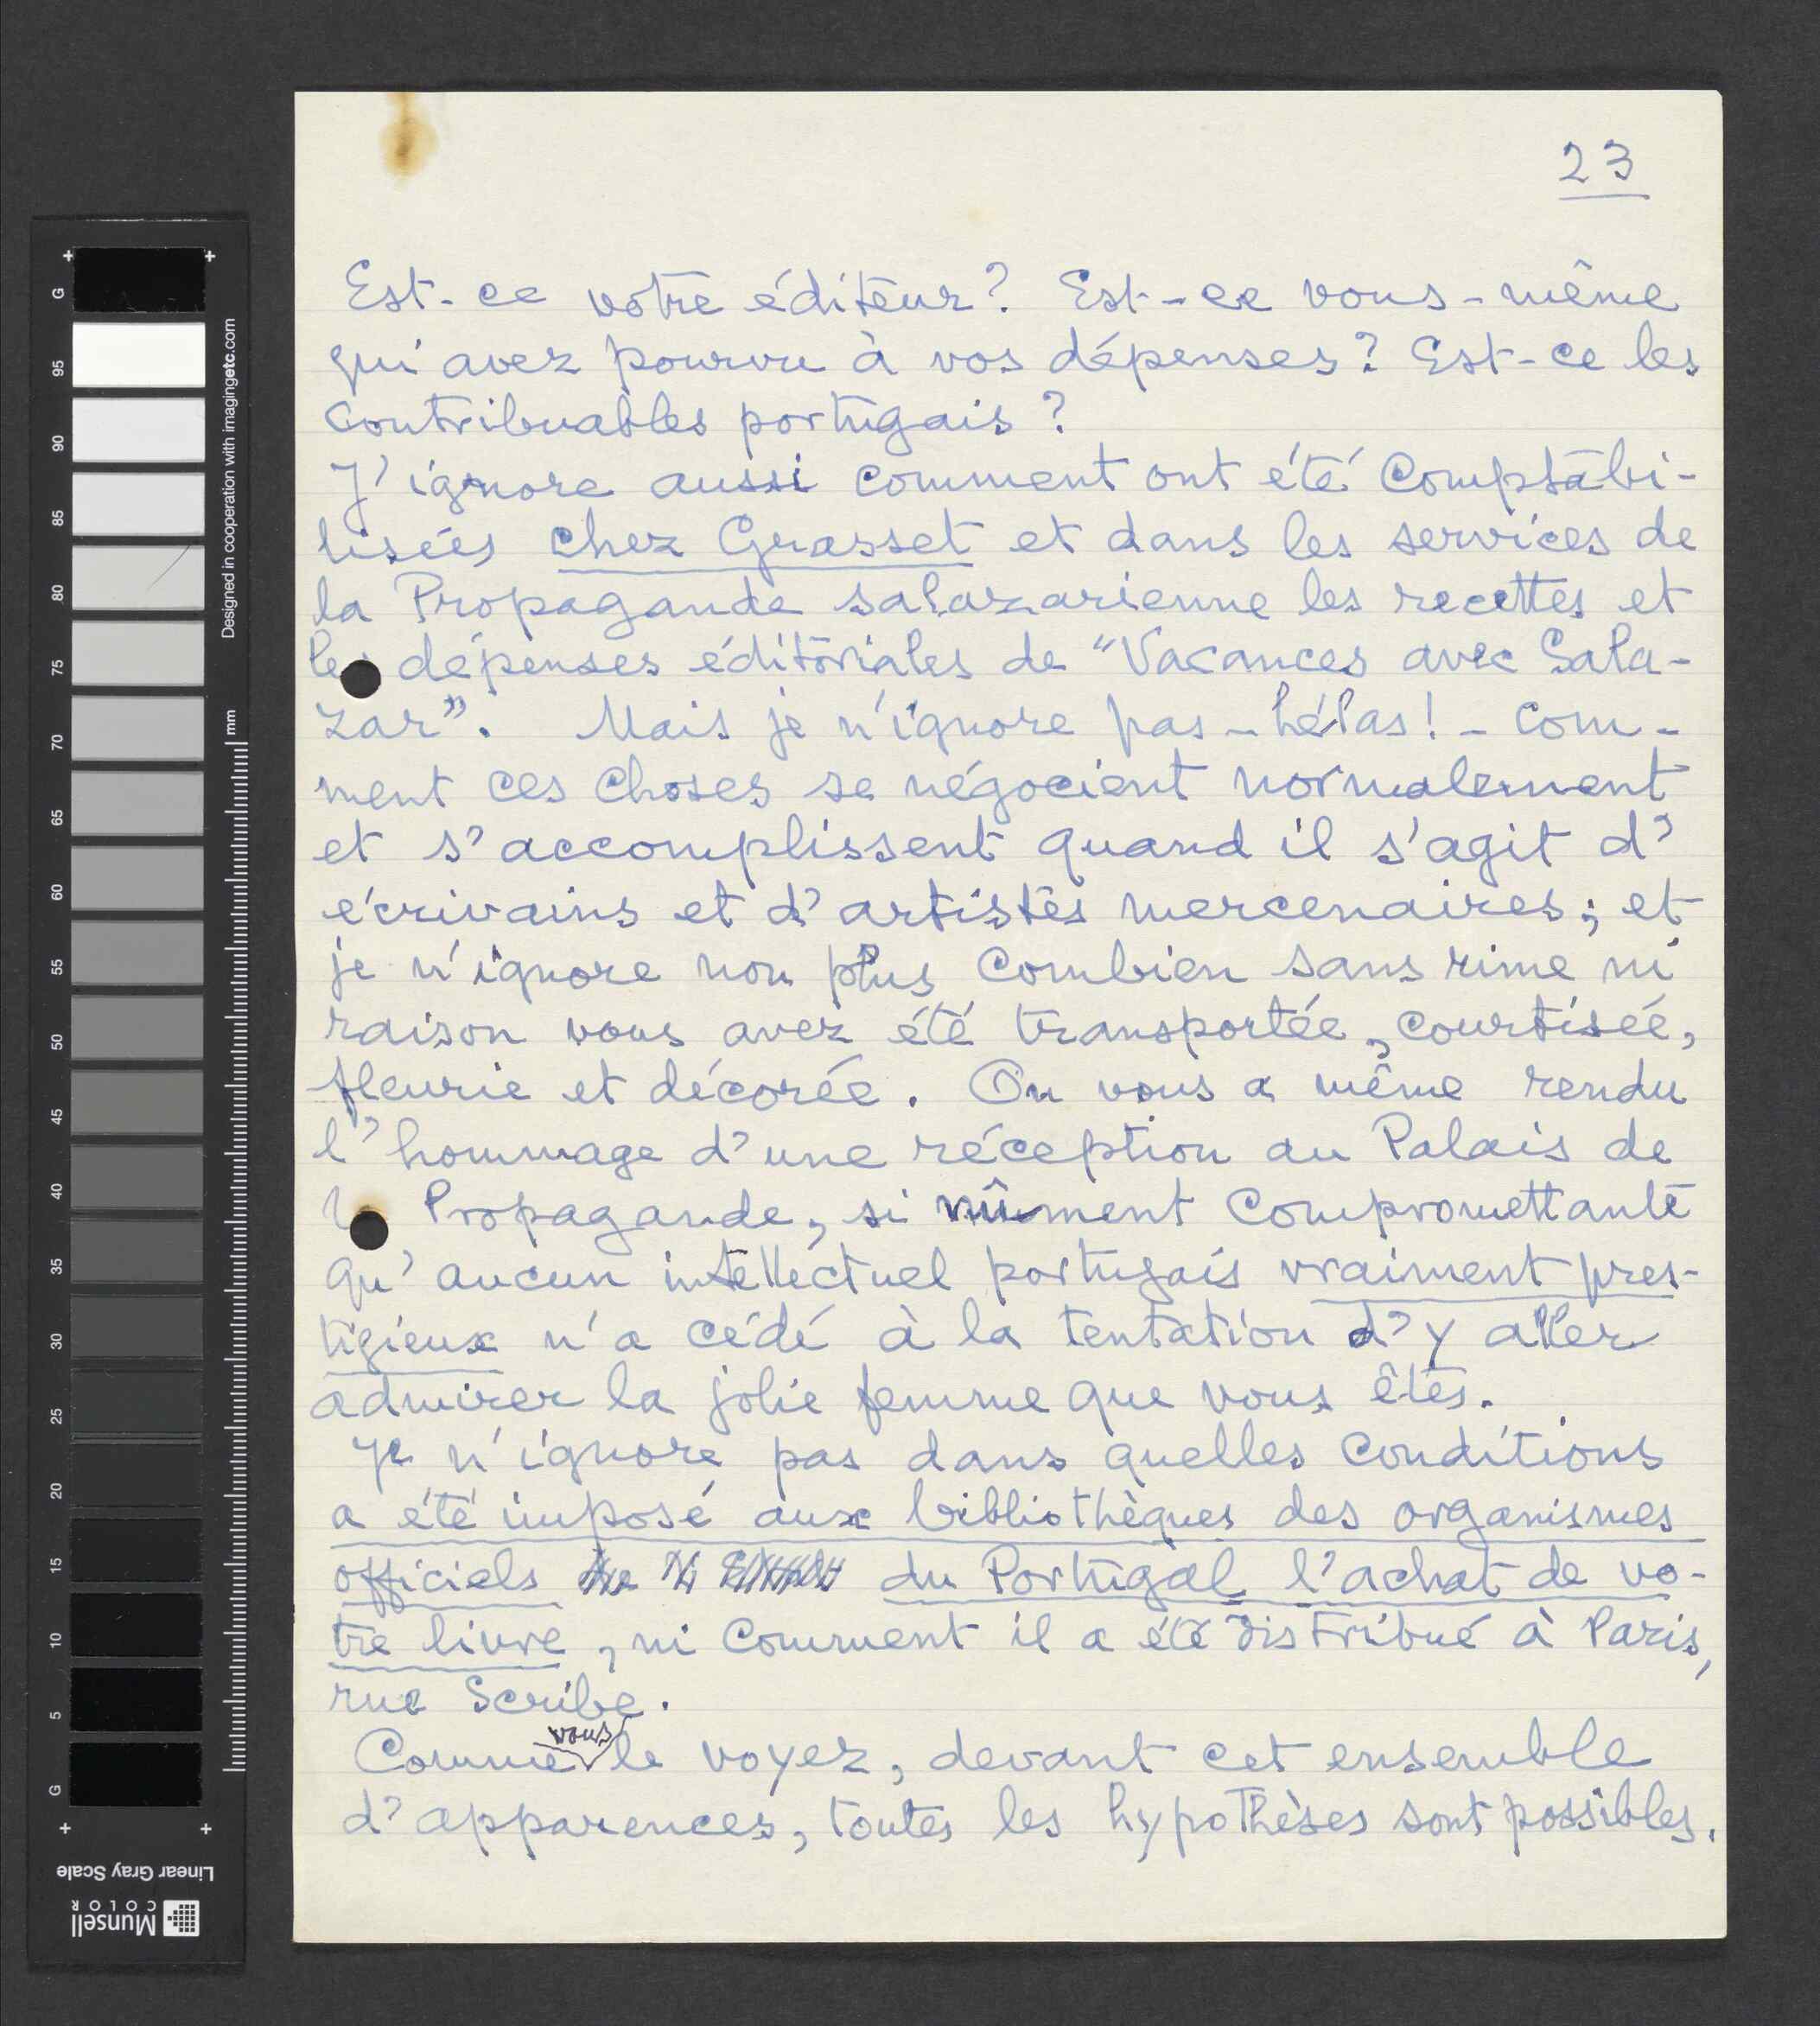 23
Est-ce votre éditeur? Est-ce vous-même
qui avez pourvu à vos dépenses? Est-ce les
contribuables portugais?
J'ignore aussi comment ont été comptabi-
lisées chez Grasset et dans les services de
la Propagande salazarienne les recettes et
les dépenses éditoriales de "Vacances avec Sala-
zar". Mais je n'ignore pas - hélas! - com-
ment ces choses se négocient normalement
et s'accomplissent quand il s'agit d'
écrivains et d'artistes mercenaires; et
je n'ignore non plus combien sans rime ni
raison vous avez été transportée, courtisée,
fleurie et décorée. On vous a même rendu
l'hommage d'une réception au Palais de
Propagande, si nûment compromettante
qu'aucun intellectuel portugais vraiment pres-
tigieux n'a cédé à la tentation d'y aller
admirer la jolie femme que vous êtes.
Je n'ignore pas dans quelles conditions
a été imposé aux bibliothèques des organismes
officiels du Portugal l'achat de vo-
tre livre, ni comment il a été distribué à Paris,
rue Scribe.
Comme vous le voyez, devant cet ensemble
d'apparences, toutes les hypothèses sont possibles.
G 95 90 85 80 75 70 65 60 55 50 45 40 35 30 25 20 15 10 5 G
Designed in cooperation with imagingetc.com
mm
Linear Gray Scale
Munsell
COLOR